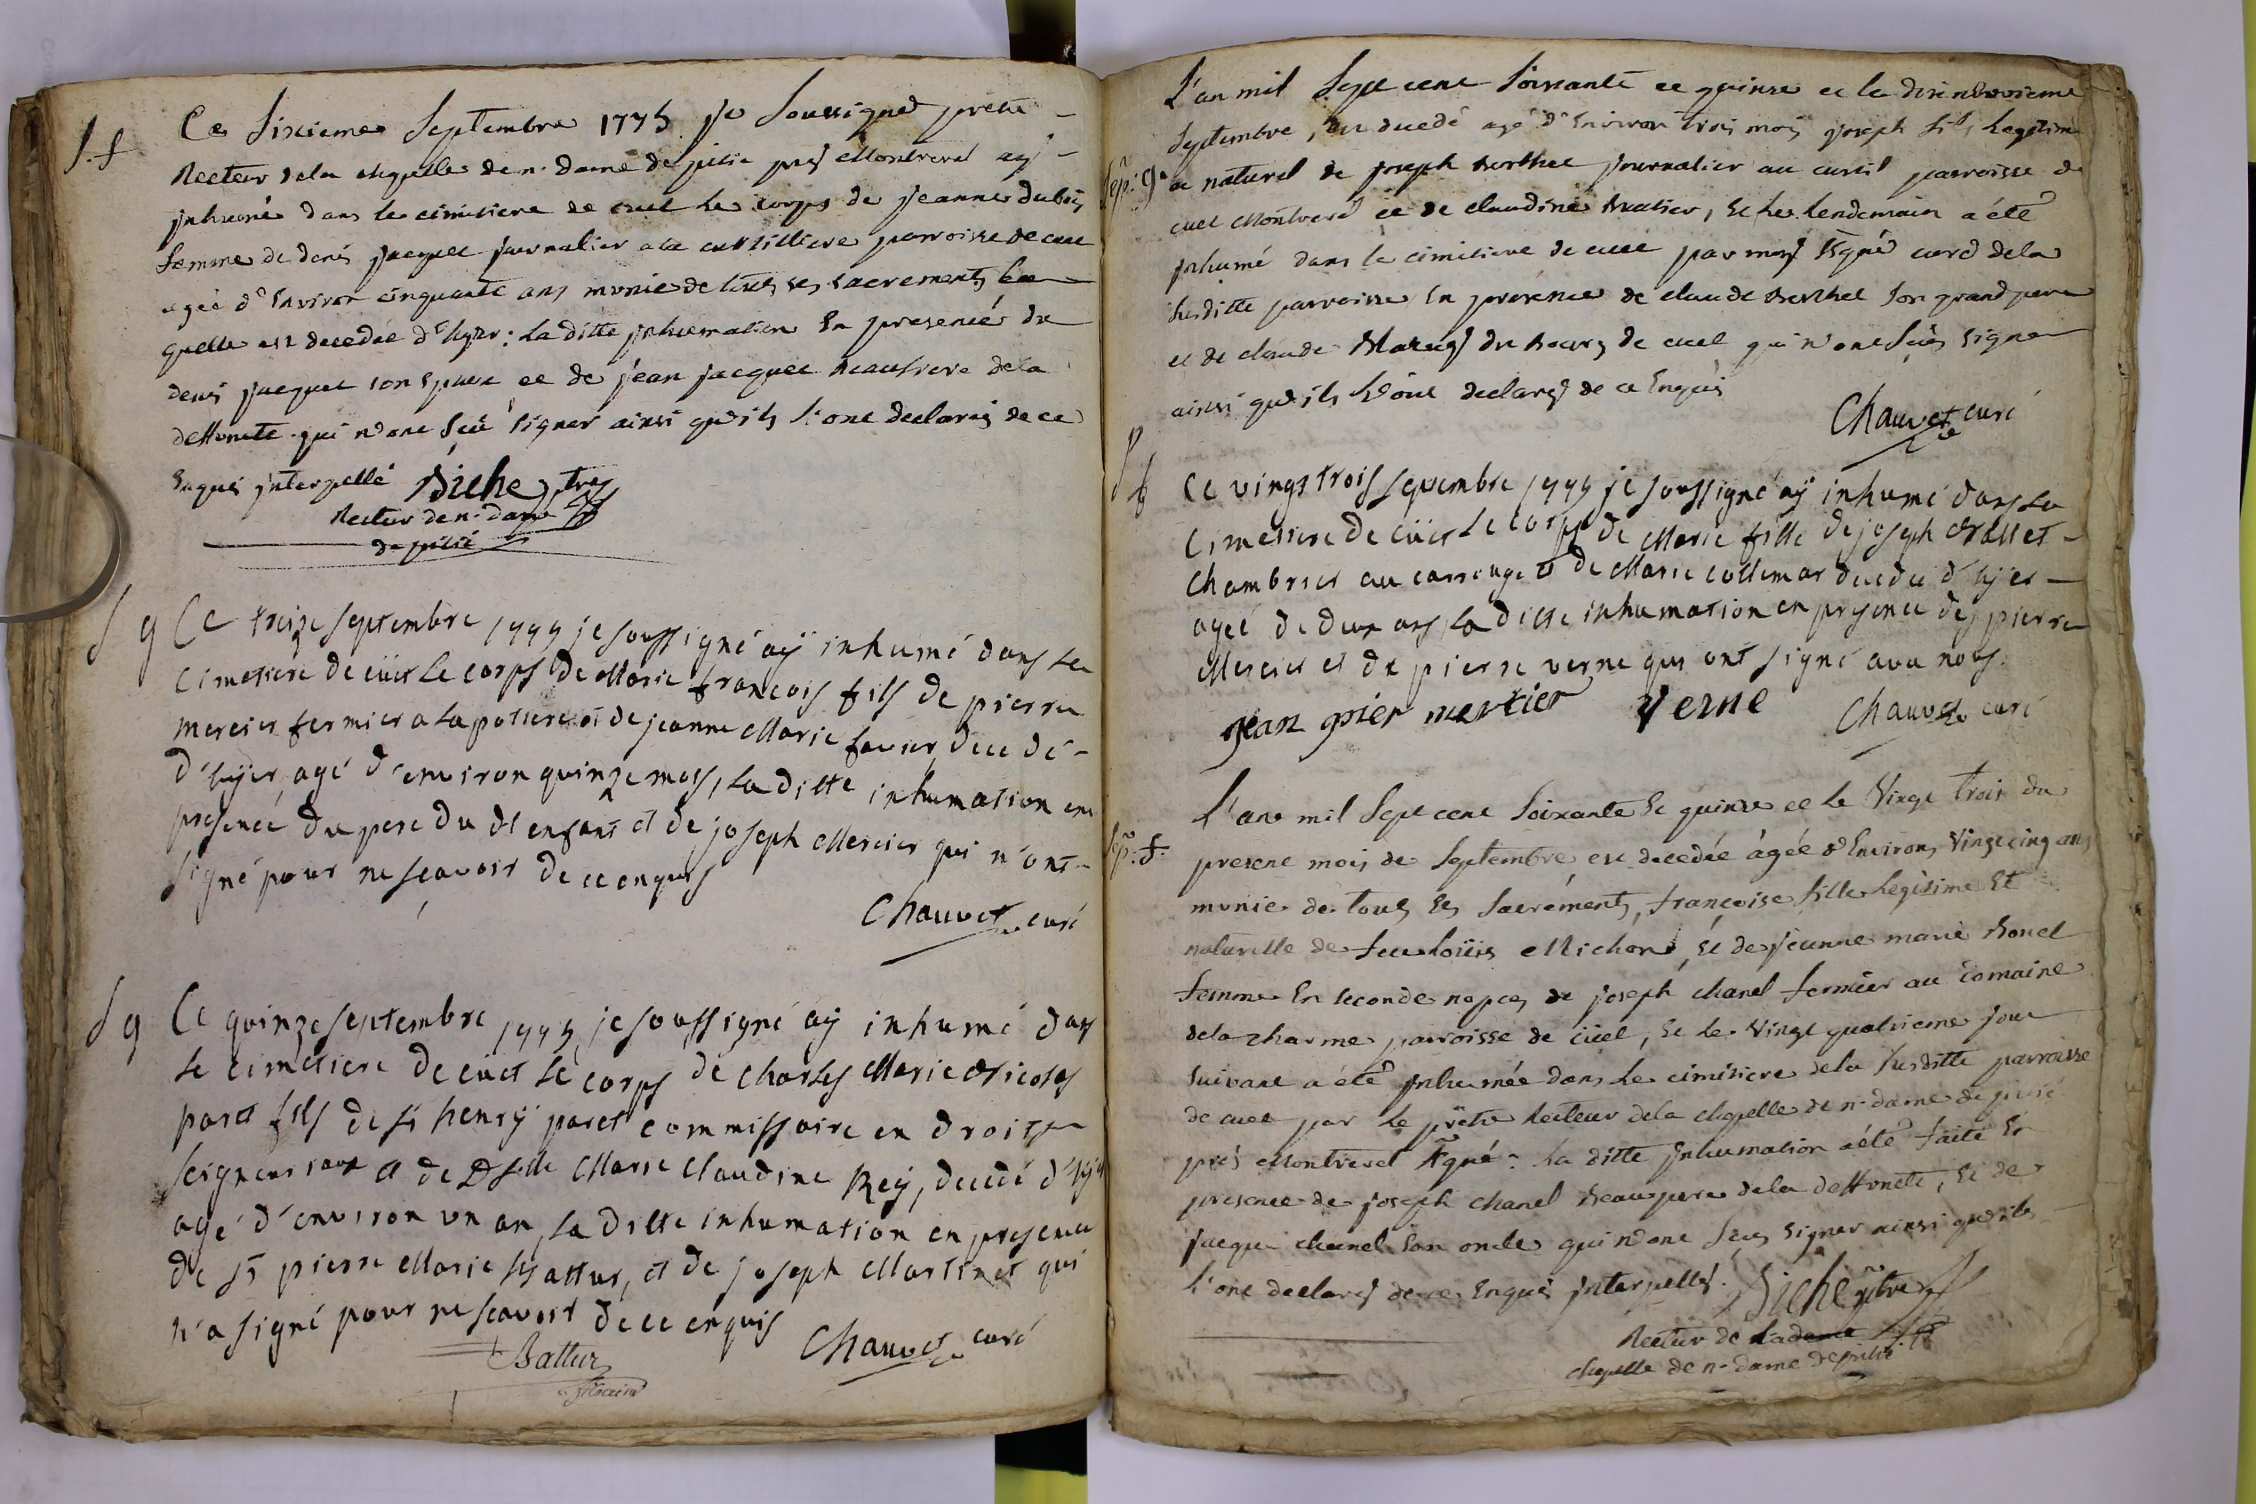 S. f
Ce Sixieme Septembre 1775 je Soussigné pretre
Recteur dela chapelle de n. dame de pitié pres Montrevel ay
jnhumé dans le cimitiere de cuet le corps de jeanne dubois
femme de denis jacquet journalier a la parroisse de cuet
agée d'Environ cinquante ans munie de tous ses sacrements la
quelle est decedée d'hyer : la ditte jnhumation En presence de
denis jacquet son Epoux et de jean jacquet beaufrere dela
deffuncte qui n'ont sçu signer ainsi qu'ils l'ont declaré de ce
Enquis jnterpellé Piche ptre
Recteur de n. dame
de pitié
S g
Ce treize septembre 1775 je soussigné aÿ inhumé dans le
Cimetiere de cüet le corps de Marie francois fils de pierre
mercier fermier a la potiere et de jeanne Marie favier, decedé
d'hÿer, agé d'environ quinze mois, la ditte inhumation en
presence du pere du dt enfant et de joseph Mercier qui n'ont
signé pour ne sçavoir de ce enquis
Chauvet curé
S g
Ce quinze septembre 1775 je soussigné aÿ inhumé dans
le cimetiere de cüet le corps de Charles Marie Nicolas
paret fils de sr henrÿ paret commissaire en droits
seigneuriaux et de Dselle Marie Claudine Reÿ, decedé d'hÿer
agé d'environ un an, la ditte inhumation en presence
de sr pierre Marie Battur, et de joseph Martinet qui
n'a signé pour ne sçavoir de ce enquis
Battur
Chauvet curé
L'an mil Sept cent Soixante et quinze et le dixneuvieme
Septembre, est decedé agé d'Environ trois mois joseph fils legitime
Sep: g.
et naturel de joseph berthet journalier au curtil parroisse de
cuet Montrevel et de claudine bratier, et le lendemain a été
jnhumé dans le cimitiere de cuet par moy ssigné curé dela
susditte parroisse En présence de claude berthet son grand pere
et de claude du bourg de cuet qui n'ont sçus signer
ainsi qu'ils l'ont declaré de ce Enquis
Chauvet curé
S f
Ce vingt trois septembre 1775 je soussigné aÿ inhumé dans le
Cimetiere de cüet le corps de Marie fille de joseph
Chambrier au et de Marie decedée d'hÿer
agée de deux ans, la ditte inhumation en presence de pierre
Mercier et de pierre verne qui ont signé avec nous.
jean pier mercier Verne Chauvet curé
Sep: f.
L'an mil Sept cent Soixante Et quinze et le Vingt trois du
present mois de Septembre est decedée àgée d'Environ Vingt cinq ans
munie de tous les Sacréments, françoise fille legitime Et
naturelle de feu loüis Michon, Et de jeanne marie bonet
femme En seconde nopces de joseph chanel fermier au domaine
dela charme parroisse de cüet, Et le Vingt quatrieme jour
suivant a été jnhumée dans le cimitiere dela susditte parroisse
de cuet par le prêtre Recteur dela chapelle de n. dame de pitié
près Montrevel ssigné : la ditte jnhumation a été faite En
presence de joseph chanel beaupere dela deffuncte, Et de
jacque chanel son oncle qui n'ont sçus signer ainsi qu'ils
l'ont declaré de ce Enquis jnterpellés. Piche ptre
Recteur de la dame
chapelle de n. dame de pitié